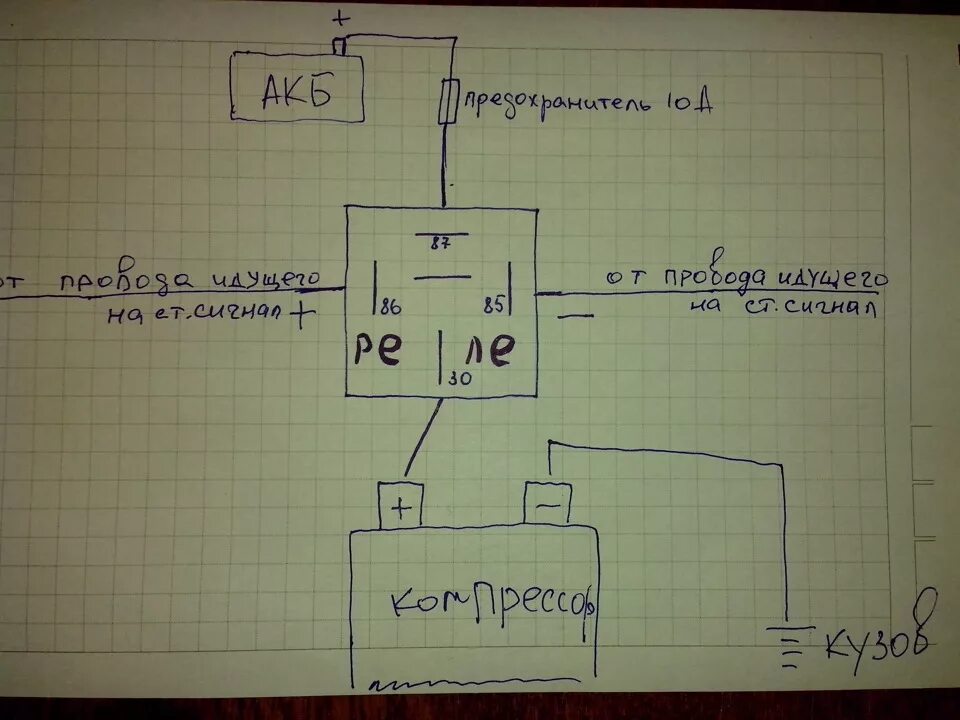 +
АКБ
предохранитель 10А
87
от провода идущего
на ст. сигнал +
86
85
от провода идущего
на ст. сигнал
—
РЕ ЛЕ
30
+
—
компрессор
кузов